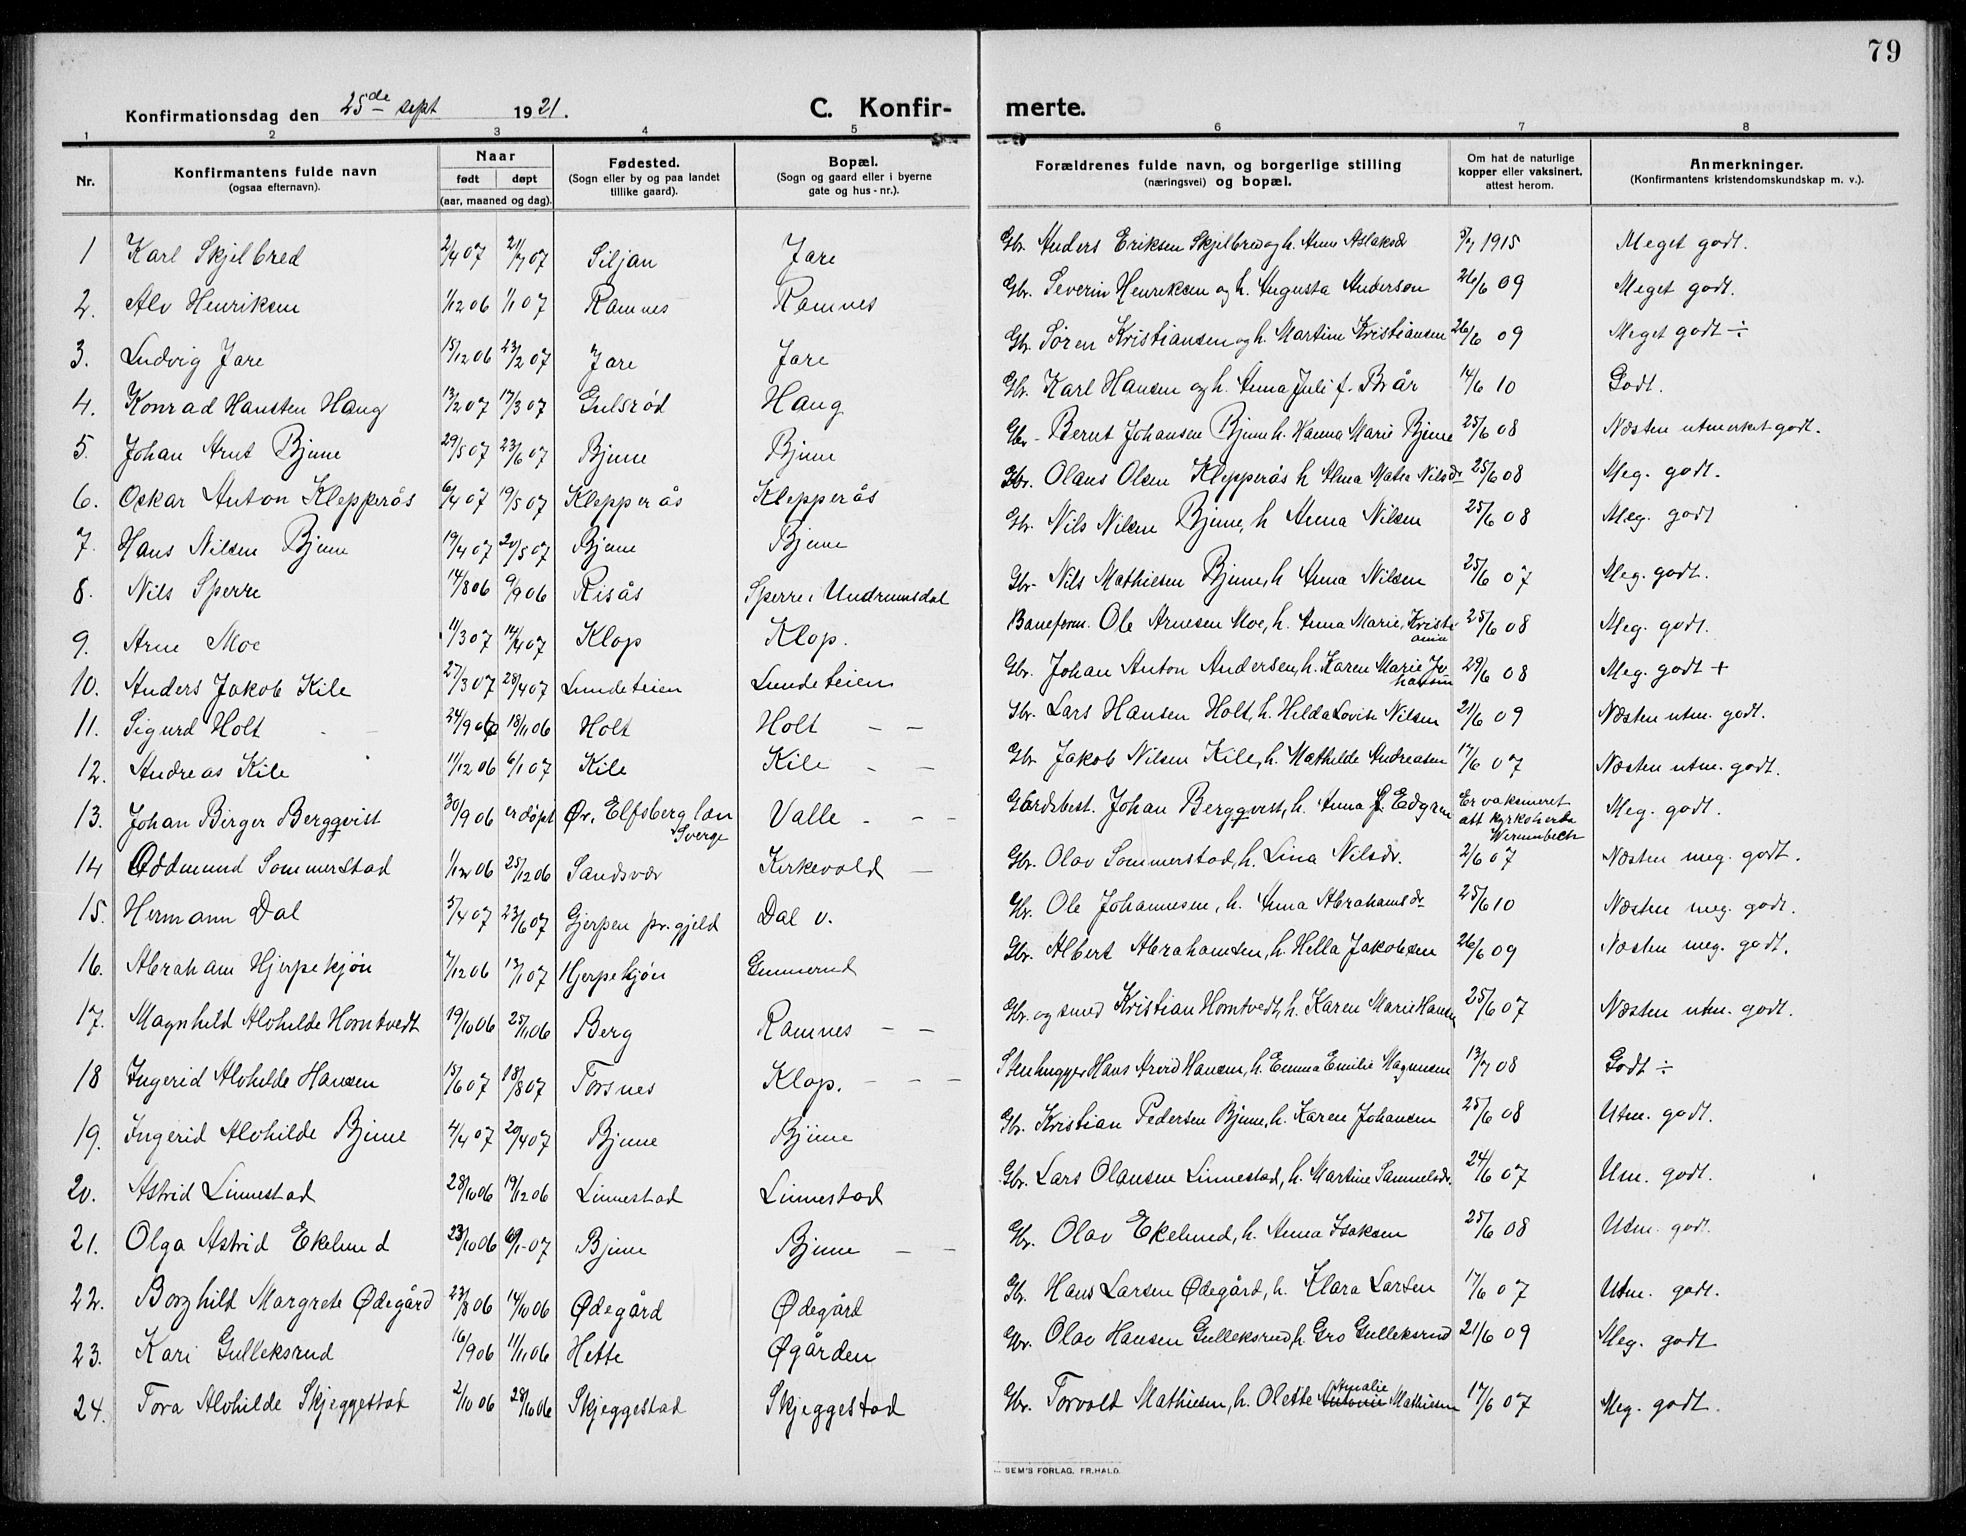 79
Konfirmationsdag den 25de sept 1921. C. Konfir- merte.
1 2 3 4 5 6 7 8
Nr. Konfirmantens fulde navn (ogsaa efternavn). Naar født døpt (aar, maaned og dag). Fødested. (Sogn eller by og paa landet tillike gaard). Bopæl. (Sogn og gaard eller i byerne gate og hus-nr.). Forældrenes fulde navn, og borgerlige stilling (næringsvei) og bopæl. Om hat de naturlige kopper eller vaksinert, attest herom. Anmerkninger. (Konfirmantens kristendomskundskap m. v.).
1 Karl Skjelbred 2/4 07 21/7 07 Siljan Jare Gbr. Anders Eriksen Skjelbred og h. Anne Aslaksdr 5/7 1915 Meget godt.
2. Alv Henriksen 1/12 06 1/1 07 Ramnes Ramnes Gbr. Severin Henriksen og h. Augusta Anderson 26/6 09 Meget godt.
3. Ludvig Jare 15/12 06 23/2 07 Jare Jare Gbr. Søren Kristiansen og h. Martine Kristiansen 26/6 09 Meget godt ÷
4. Konrad Hansten Haug 13/2 07 17/3 07 Gulsrød Haug Gbr. Karl Hansen og h. Anna Juli f. Brår 14/6 10 Godt.
5. Johan Arnt Bjune 29/5 07 23/6 07 Bjune Bjune Gbr. Bernt Johansen Bjune h. Hanna Marie Bjune 25/6 08 Næsten utmerket godt.
6. Oskar Anton Klepperås 6/4 07 19/5 07 Klepperås Klepperås Gbr. Olaus Olsen Klepperås h Alma Matea Nilsdr 25/6 08 Meg. godt.
7. Hans Nilsen Bjune 19/4 07 20/5 07 Bjune Bjune Gbr. Nils Nilsen Bjune, h Anna Nilsen 25/6 08 Meg. godt
8. Nils Sperre 14/8 06 9/9 06 Risås Sperre i Undrumsdal Gbr. Nils Mathiesen Bjune, h Anna Nilsen 25/6 07 Meg. godt.
9. Arne Moe 11/3 07 14/4 07 Klop Klop. Baneform. Ole Arnesen Moe, h. Anna Marie Kristi ansen 25/6 08 Meg. godt.
10. Anders Jakob Kile 27/3 07 28/4 07 Lundeteien Lundeteien Gbr. Johan Anton Andersen, h. Karen Marie Jo hansen 29/6 08 Meg. godt +
11. Sigurd Holt 24/9 06 18/11 06 Holt Holt – – Gbr. Lars Hansen Holt, h. Hilda Lovise Nilsen 21/6 09 Næsten utm. godt.
12. Andreas Kile 11/12 06 6/1 07 Kile Kile – – Gbr. Jakob Nilsen Kile, h. Mathilde Andreasen 17/6 07 Næsten utm. godt.
13. Johan Birger Bergqvist 30/9 06 er døpt Ør. Elfsberg län Sverge Valle – – – Gårdsbest. Johan Bergqvist, h. Anna f. Edgren Er vaksineret att kyrkoherde Meg. godt.
14 Oddmund Sommerstad 1/12 06 25/12 06 Sandsvær Kirkevold – Gbr. Olav Sommerstad, h. Lina Nilsdr. 2/6 07 Næsten meg. godt.
15. Hermann Dal 5/4 07 23/6 07 Gjerpen pr.gjeld Dal v. Gbr. Ole Johannesen, h. Anna Abrahamsdr 25/6 10 Næsten meg. godt.
16. Abraham Hjerpekjøn 7/12 06 13/1 07 Hjerpekjøn Gunnerud Gbr. Albert Abrahamsen, h. Hella Jakobsen 26/6 09 Næsten meg. godt.
17. Magnhild Alvhilde Horntvedt 19/10 06 25/11 06 Berg Ramnes – – Gbr. og smed Kristian Horntvedt, h. Karen Marie Hansen 25/6 07 Næsten utm. godt.
18 Ingerid Alvhilde Hansen 15/6 07 18/8 07 Torsnes Klop. – – – Stenhugger Hans Arvid Hansen, h. Emma Emilie Magnusen 13/7 08 Godt ÷
19. Ingerid Alvhilde Bjune 4/4 07 20/4 07 Bjune Bjune Gbr. Kristian Pedersen Bjune, h. Karen Johansen 25/6 08 Utm. godt.
20. Astrid Linnestad 28/10 06 19/12 06 Linnestad Linnestad Gbr. Lars Olausen Linnestad, h. Martine Samuelsdr. 24/6 07 Um. godt.
21. Olga Astrid Ekelund 23/10 06 6/1 07 Bjune Bjune – – Gbr. Olav Ekelund, h. Anna Isaksen 25/6 08 Utm. godt.
22. Borghild Margrete Ødegård 23/8 06 14/10 06 Ødegård Ødegård Gbr. Hans Larsen Ødegård, h. Klara Larsen 17/6 07 Utm. godt.
23. Kari Gulleksrud 16/9 06 11/11 06 Hette Øgården Gbr. Olav Hansen Gulleksrud, h. Gro Gulleksrud 21/6 09 Meg. godt
24. Tora Alvhilde Skjeggestad 2/10 06 28/10 06 Skjeggestad Skjeggestad Gbr. Torvald Mathiesen, h. Olette Amalie Mathiesen 17/6 07 Meg. godt.
SEM'S FORLAG. FR.HALD.